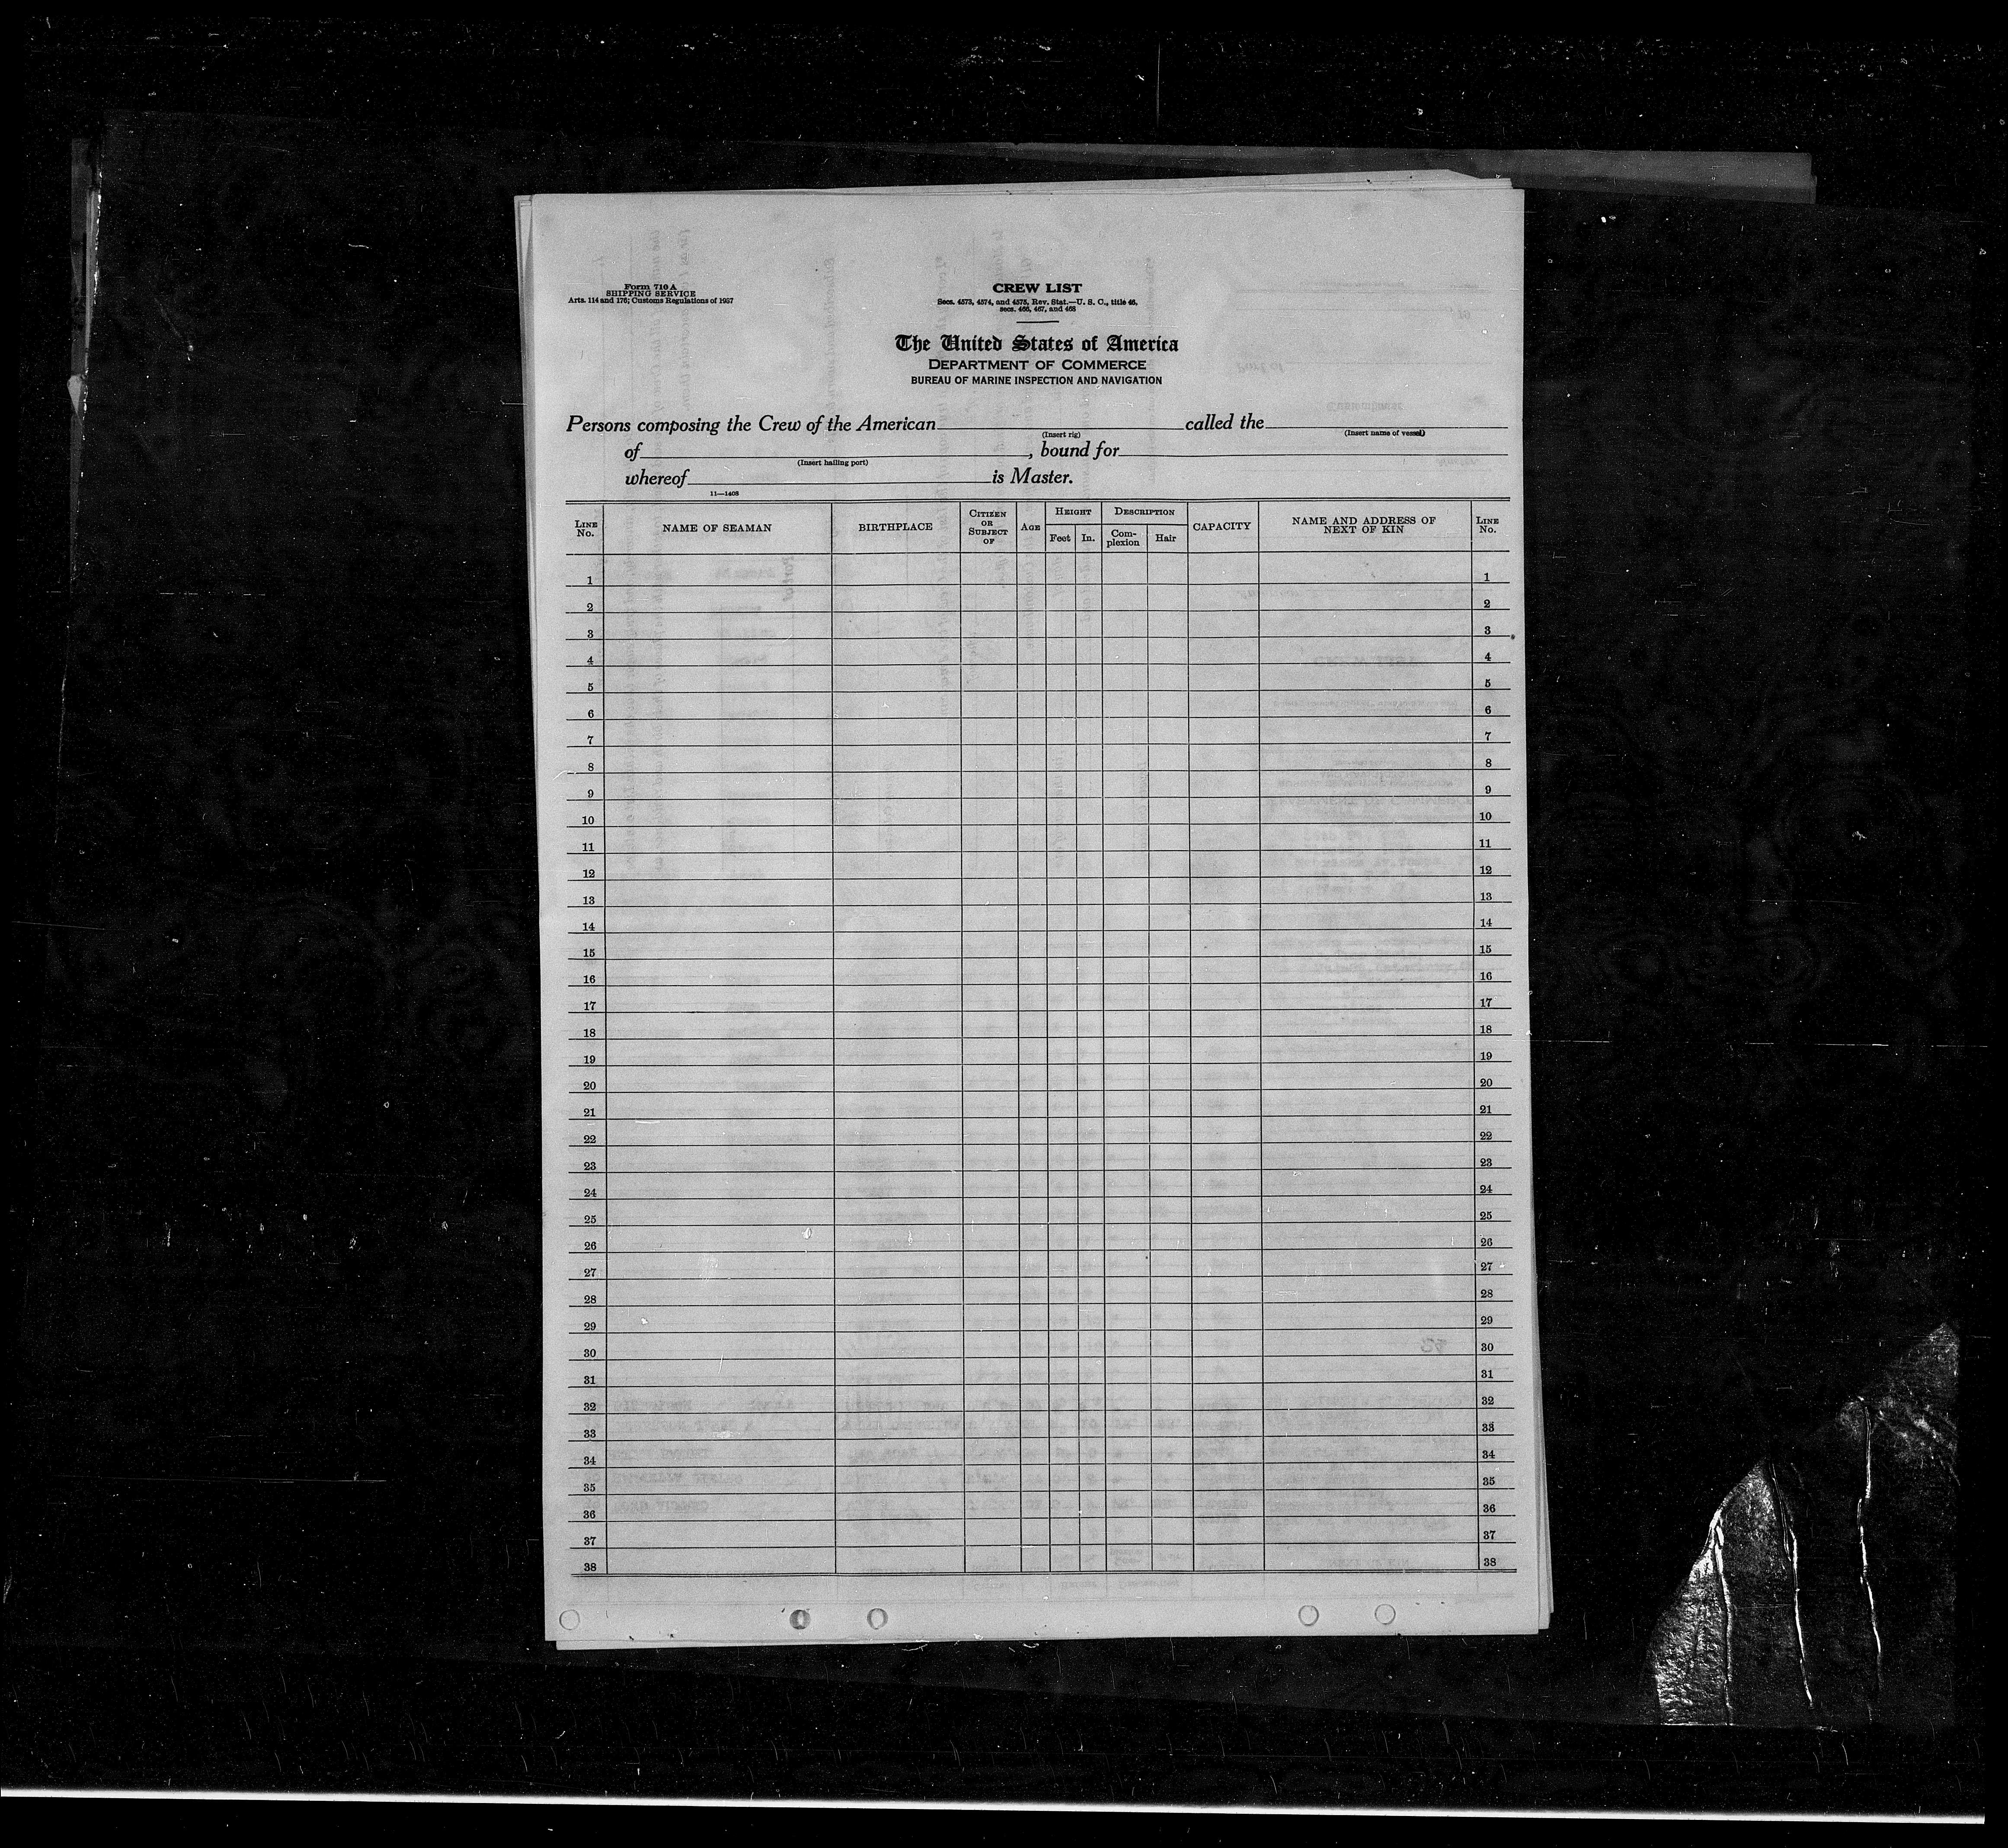 Form 710 A
SHIPPING SERVICE
Arts. 114 and 176; Customs Regulations of 1937
CREW LIST
Secs. 4573, 4574, and 4575, Rev. Stat.—U. S. C., title 46,
secs. 466, 467, and 468
The United States of America
DEPARTMENT OF COMMERCE
BUREAU OF MARINE INSPECTION AND NAVIGATION
Persons composing the Crew of the American called the
(Insert rig) (Insert name of vessel)
of , bound for
(Insert hailing port)
whereof is Master.
11—1408
LINE No. NAME OF SEAMAN BIRTHPLACE CITIZEN OR SUBJECT OF AGE HEIGHT Feet In. DESCRIPTION Com-plexion Hair CAPACITY NAME AND ADDRESS OF NEXT OF KIN LINE No.
1 1
2 2
3 3
4 4
5 5
6 6
7 7
8 8
9 9
10 10
11 11
12 12
13 13
14 14
15 15
16 16
17 17
18 18
19 19
20 20
21 21
22 22
23 23
24 24
25 25
26 26
27 27
28 28
29 29
30 30
31 31
32 32
33 33
34 34
35 35
36 36
37 37
38 38